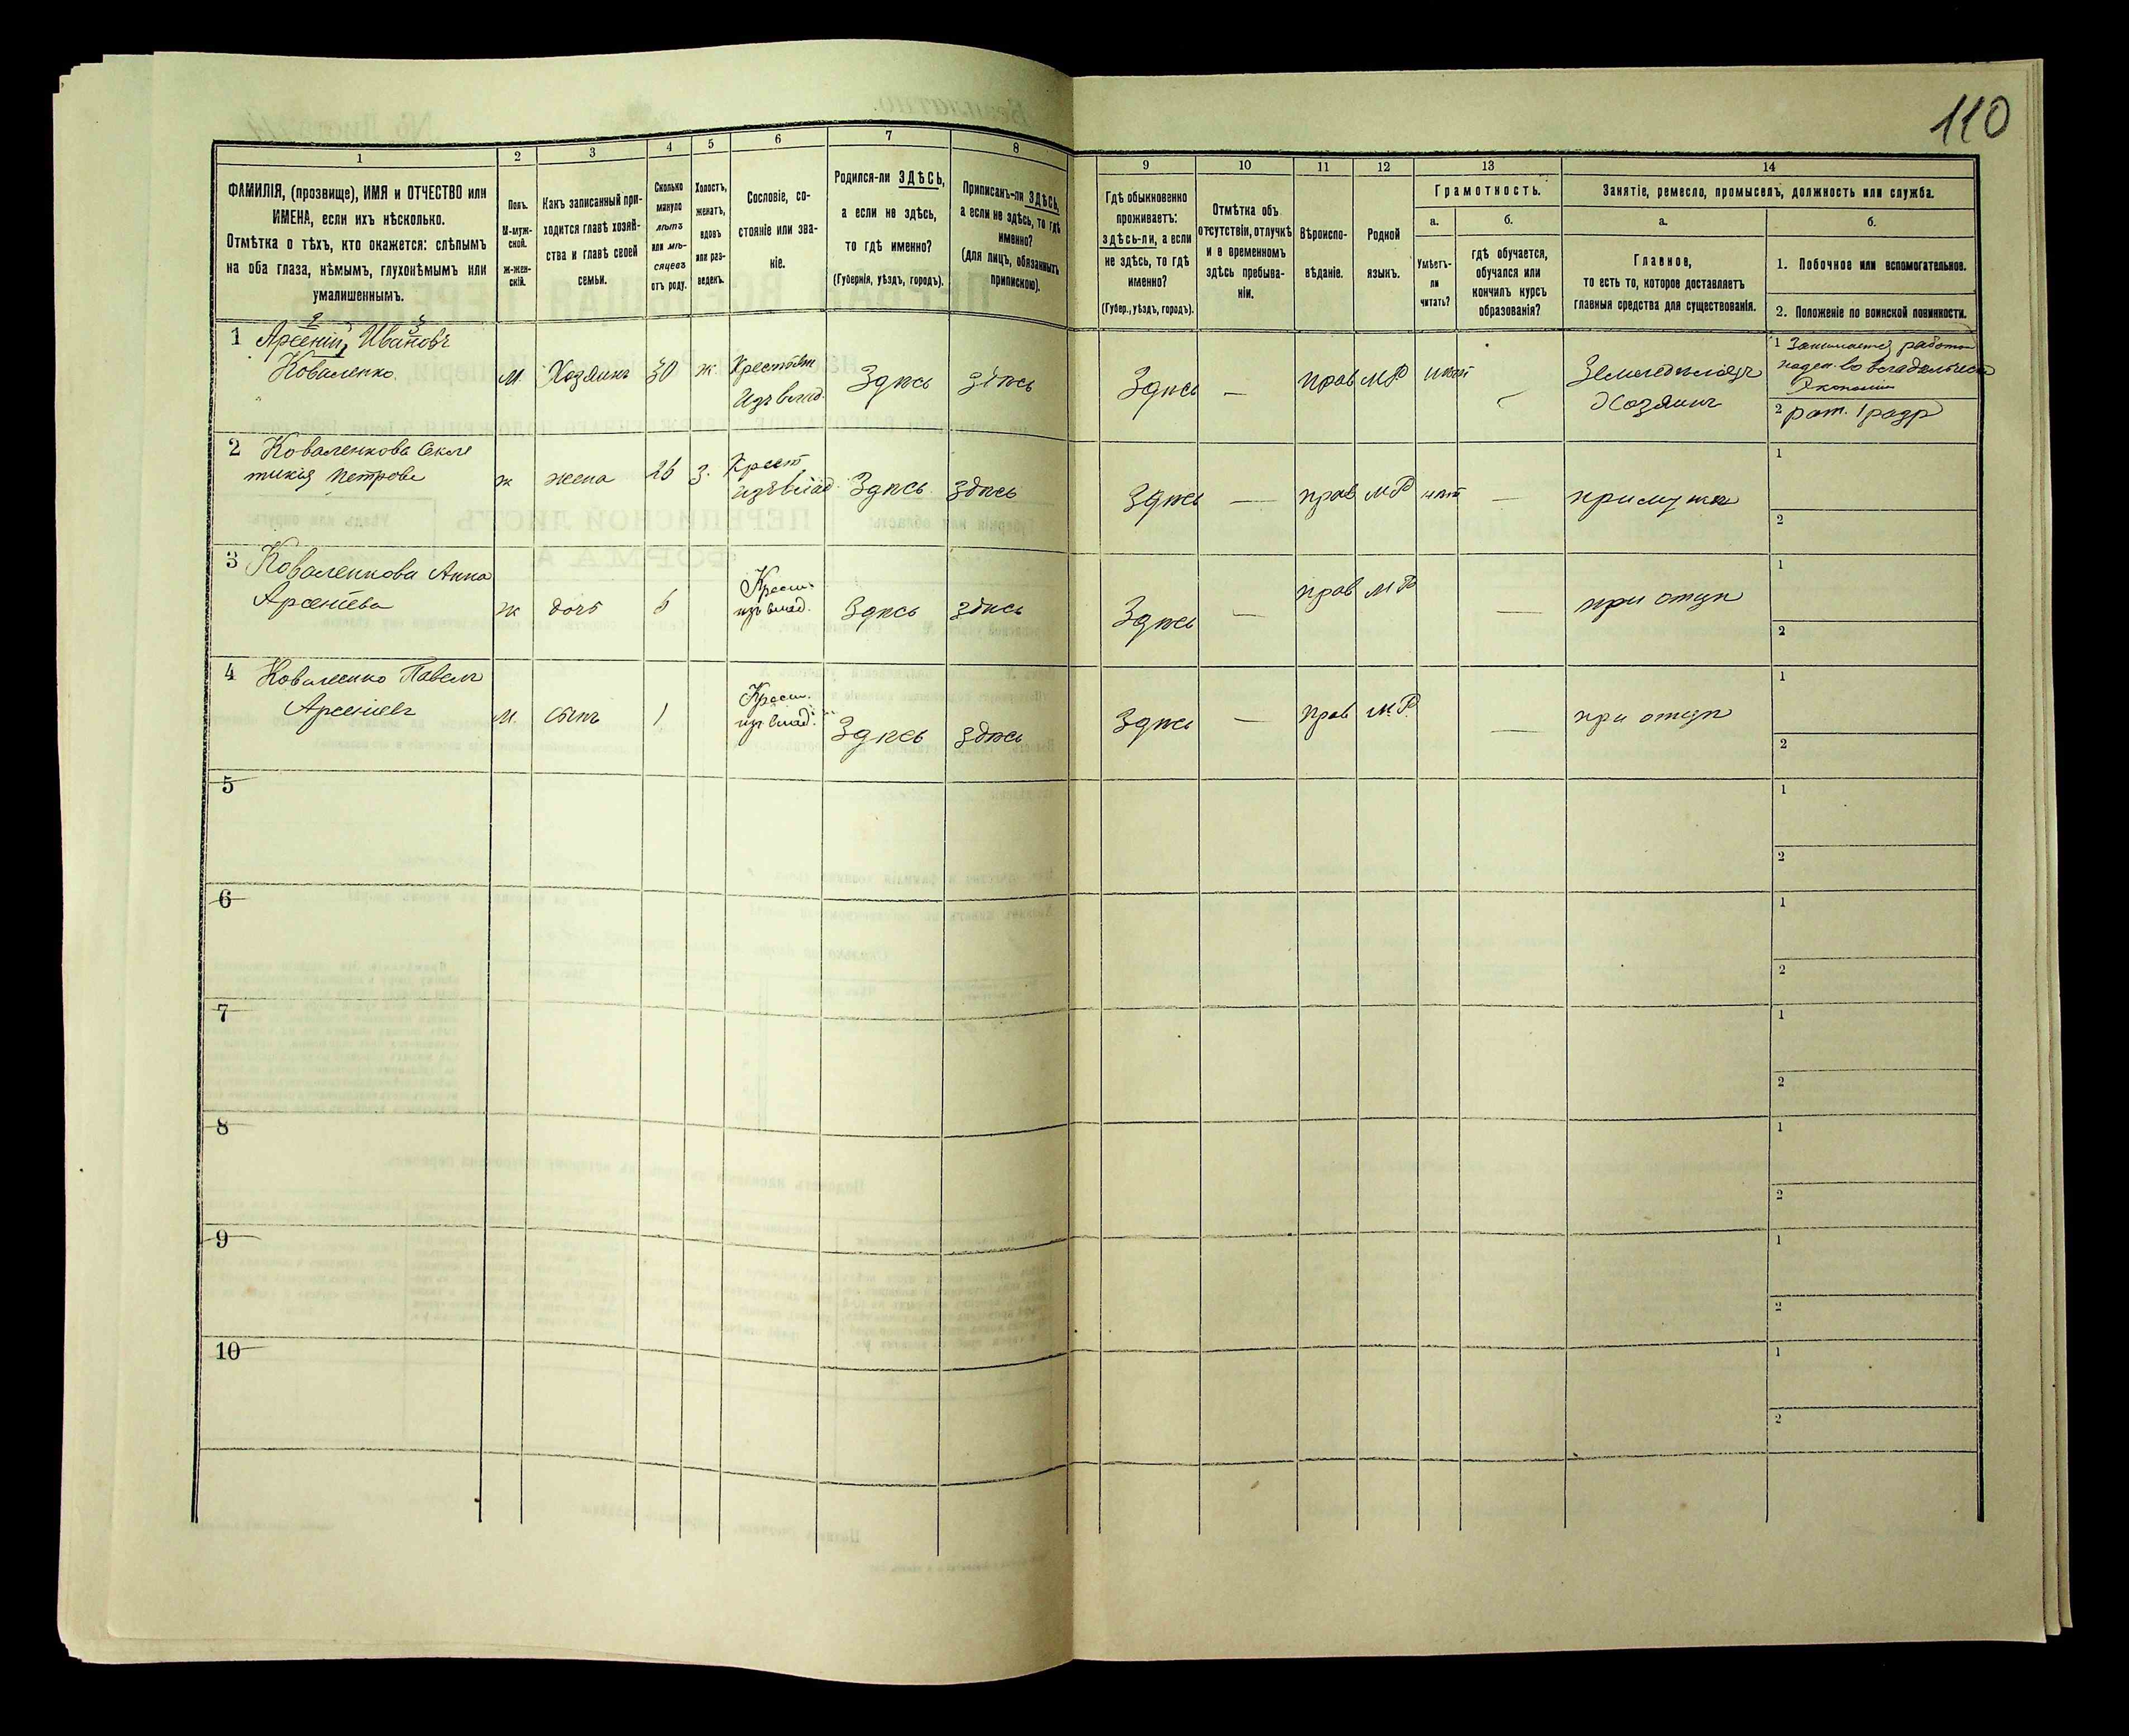 110
1 2 3 4 5 6 7 8 9 10 11 12 13 14
ФАМИЛІЯ, (прозвище), ИМЯ и ОТЧЕСТВО или
ИМЕНА, если ихъ нѣсколько.
Отмѣтка о тѣхъ, кто окажется: слѣпымъ
на оба глаза, нѣмымъ, глухонѣмымъ или
умалишеннымъ.
Полъ.
М-муж-
ской.
ж-жен-
скій.
Какъ записанный при-
ходится главѣ хозяй-
ства и главѣ своей
семьи.
Сколько
минуло
лѣтъ
или мѣ-
сяцевъ
отъ роду.
Холостъ,
женатъ,
вдовъ
или раз-
веденъ.
Сословіе, со-
стояніе или зва-
ніе.
Родился-ли ЗДѢСЬ,
а если не здѣсь,
то гдѣ именно?
(Губернія, уѣздъ, городъ).
Приписанъ-ли ЗДѢСЬ,
а если не здѣсь, то гдѣ
именно?
(для лицъ, обязанныхъ
припискою).
Гдѣ обыкновенно
проживаетъ:
здѣсь-ли, а если
не здѣсь, то гдѣ
именно?
(Губер., уѣздъ, городъ).
Отмѣтка объ
отсутствіи, отлучкѣ
и о временномъ
здѣсь пребыва-
ніи.
Вѣроиспо-
вѣданіе.
Родной
языкъ.
Грамотность.
а.
Умѣетъ-
ли
читать?
б.
гдѣ обучается,
обучался или
кончилъ курсъ
образованія?
Занятіе, ремесло, промыселъ, должность или служба.
а.
Главное,
то есть то, которое доставляетъ
главныя средства для существованія.
б.
1. Побочное или вспомогательное.
2. Положеніе по воинской повинности.
1 Арсеній Ивановъ
Коваленко.
м. Хозяинъ 30 ж Крестьян
изъ влад. Здѣсь здѣсь Здѣсь — прав МР нѣт — Земледѣлецъ
Хозяинъ
1 Занимается работ
поден. во владѣльчес
Экономіи
2 рат. 1 разр
2 Коваленкова
Петрова
ж жена 26 з. Крест
изъ влад Здѣсь здѣсь Здѣсь — прав МР нѣт — при мужѣ
1
2
3 Коваленкова Анна
Арсеніева
ж дочь Крест.
изъ влад. Здѣсь здѣсь Здѣсь — прав МР — при отцѣ
1
2
4 Коваленко Павелъ
Арсеніевъ
м. сынъ 1 Крест.
изъ влад. Здѣсь здѣсь Здѣсь — прав МР. — при отцѣ
1
2
5 1
2
6 1
2
7 1
2
8 1
2
9 1
2
10 1
2